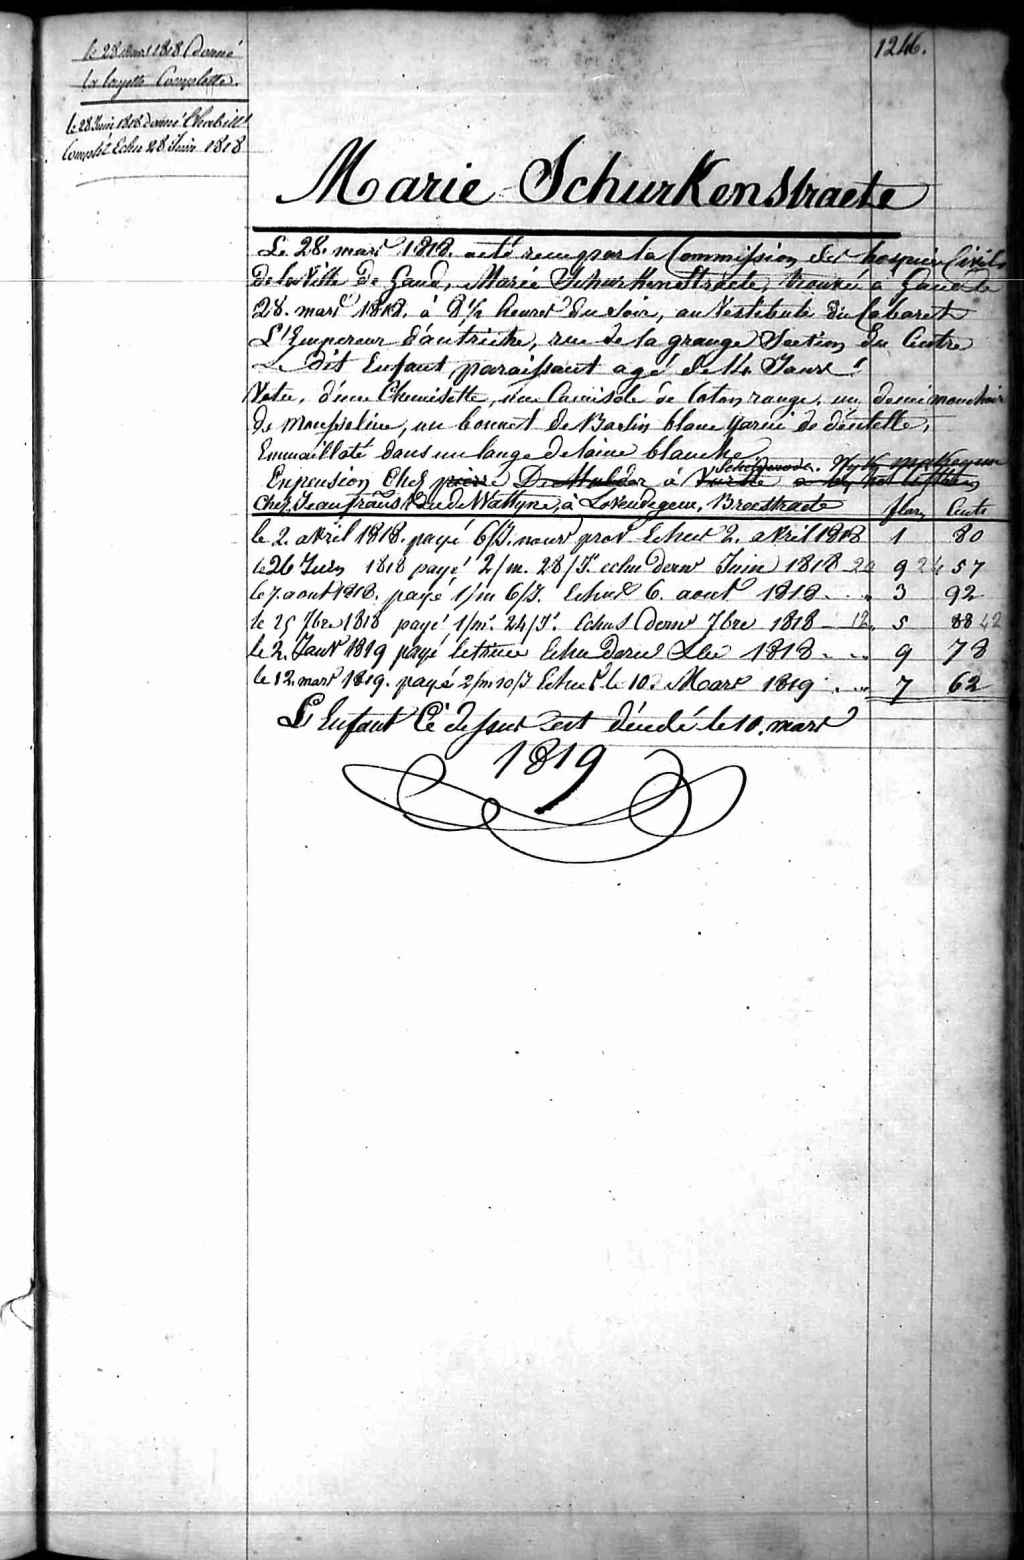 1246.
le 28 mars 1818 donné
la layette Complette.
le 28 Juin 1818 donné l'habill.t
Complet Echu 28 Juin 1818
Marie Schurkenstraete
Le 28. mars 1818. a été reçu par la Commission des hospices Civils
de la Ville de Gand, Marie Schurkenstraete, trouvée à Gand le
28. mars 1818. à 8 1/2 heures du soir, au Vestibule du Cabaret
L'Empereur d'autriche, rue de la grange Section du Centre
Le dit Enfant paraissant agé de 14 Jours.
Vetu, d'une Chemisette, une Camisole de Coton range, un demi mouchoir
de mousseline, un bonnet de Baslin blanc garni de dentelle,
Emmailloté dans un lange de laine blanche.
En pension Chez De Mulder à
Chez Jean frans de Wattyne, à Lovendegem, Breestraete
flor. Cents
le 2. avril 1818. payé 6/J. nour prov Echus 2. avril 1818 1 80
le 26 Juin 1818 payé 2/m. 28/J. echu dern Juin 1818 24 9 24 57
le 7. aout 1818. payé 1/m 6/J. Echus 6. aout 1818 . . . 3 92
le 25 7bre 1818 payé 1/m. 24/J. Echus dern 7bre 1818 - 12. 5 88 42
le 2. Janv 1819 payé le trime Echu dern Xbre 1818 . . . 9 78
le 12. mars 1819. payé 2/m 10/J Echus le 10. Mars 1819 . . . 7 62
L'Enfant Ci dessus est décédé le 10. mars
1819